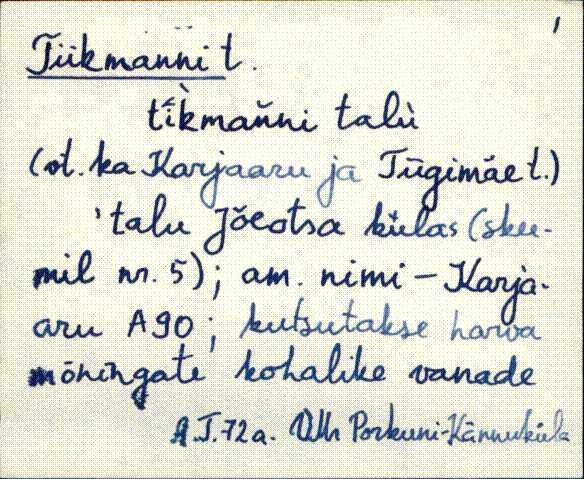 Tiikmanni t.
tì̆kmaňni talù
(vt. ka Karjaaru ja Tūgimäe t.)
'talu Jõeotsa külas (skee-
mil nr. 5); am. nimi – Karja-
aru A90; kutsutakse harva
mõningate kohalike vanade
A.J. 72a. VMr Porkuni-Kännuküla